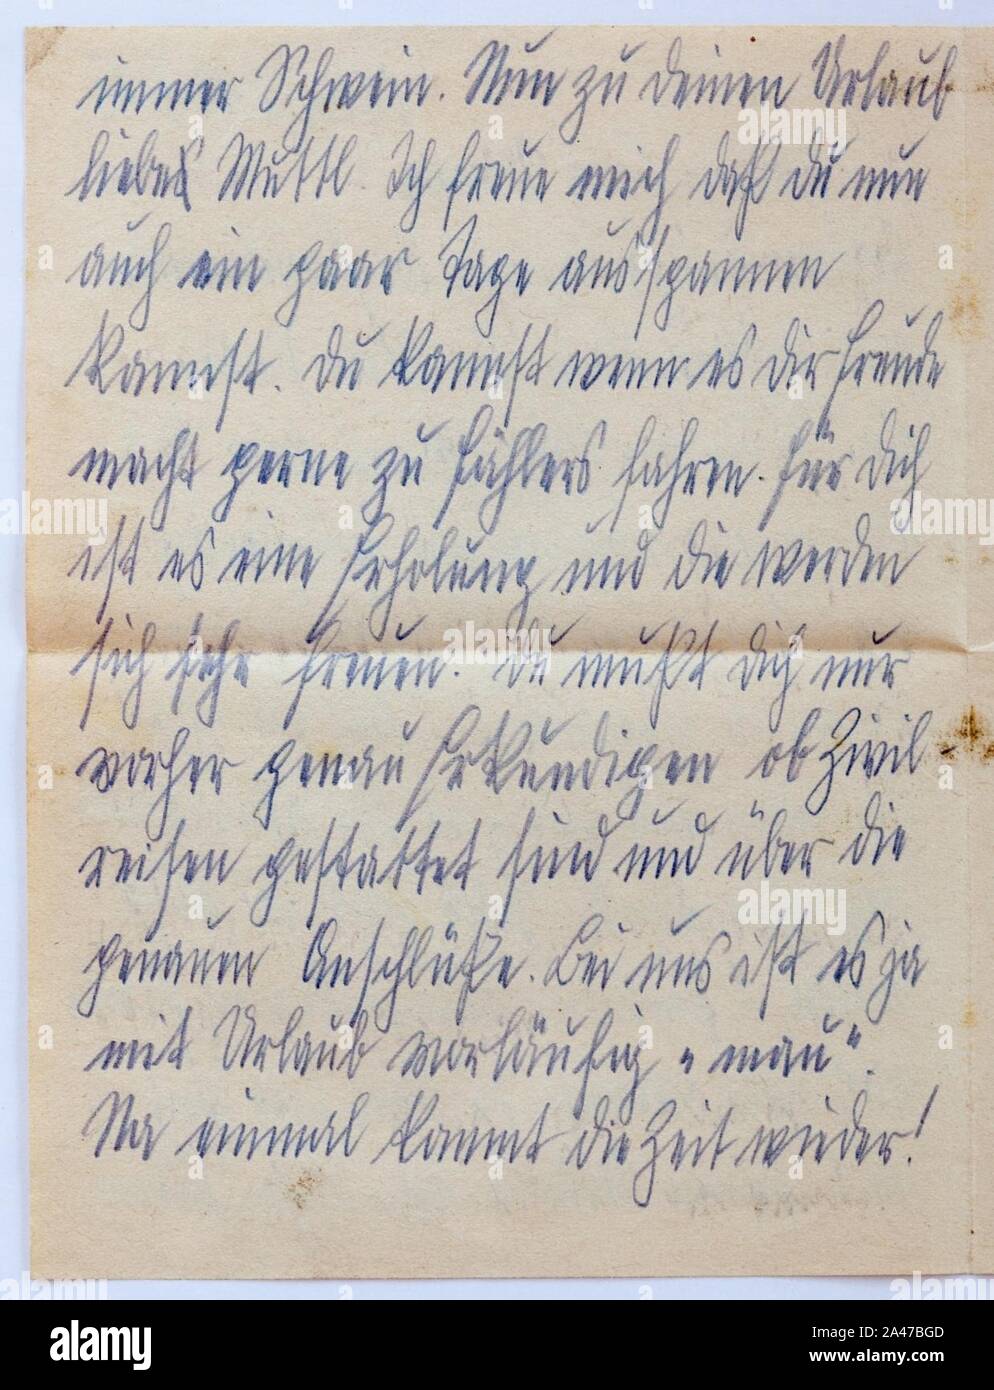 immer Schwein. Nun zu deinen Urlaub
liebes Muttl. Ich freue mich daß du nun
auch ein paar Tage ausspannen
kannst. Du kannst wenn es dir Freude
macht gerne zu Fählers fahren. Für dich
ist es eine Erholung und die werden
sich sehr freuen. Du mußt dich nur
vorher genau erkundigen ob Zivil-
reisen gestattet sind und über die
genauen Anschlüße. Bei uns ist es ja
mit Urlaub vorläufig "mau".
Na einmal kommt die Zeit wieder!
alamy
Image ID: 2A47BGD
www.alamy.com